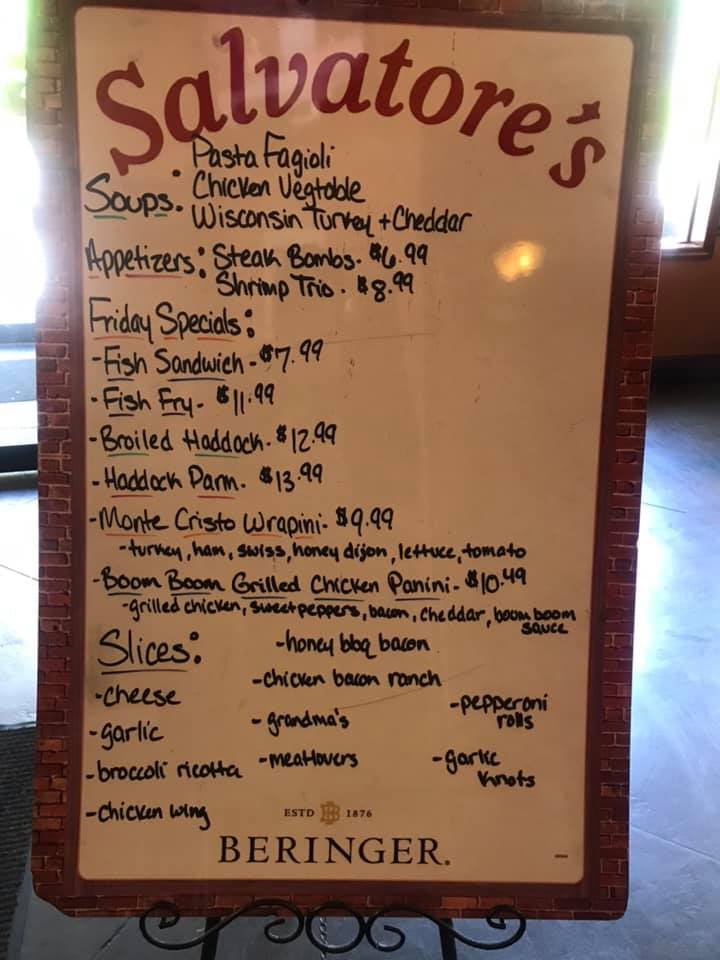 Salvatore's
Soups: Pasta Fagioli
Chicken Vegtable
Wisconsin Turkey + Cheddar
Appetizers: Steak Bombs. $6.99
Shrimp Trio. $8.99
Friday Specials:
- Fish Sandwich - $7.99
- Fish Fry - $11.99
- Broiled Haddock. $12.99
- Haddock Parm. $13.99
- Monte Cristo Wrapini - $9.99
- turkey, ham, swiss, honey dijon, lettuce, tomato
- Boom Boom Grilled Chicken Panini - $10.49
- grilled chicken, sweet peppers, bacon, cheddar, boom boom
sauce
Slices:
- cheese
- garlic
- broccoli ricotta
- chicken wing
- honey bbq bacon
- chicken bacon ranch
- grandma's
- meatlovers
- pepperoni
rolls
- garlic
knots
ESTD B 1876
BERINGER.